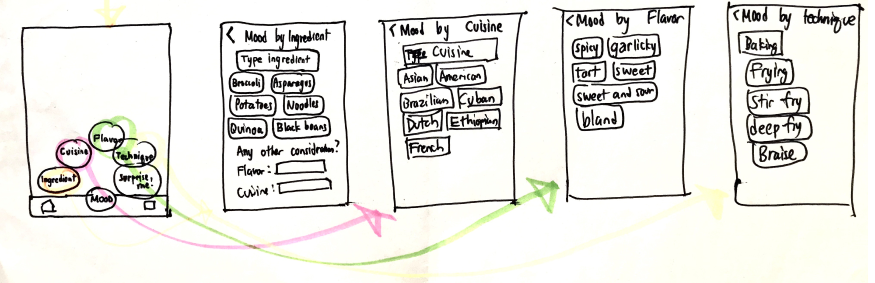 Flavor
Cuisine
Technique
Ingredient
Surprise me
Mood
< Mood by Ingredient
Type ingredient
Broccoli Asparagus
Potatoes Noodles
Quinoa Black beans
Any other consideration?
Flavor:
Cuisine:
< Mood by Cuisine
Type Cuisine
Asian American
Brazilian Cuban
Dutch Ethiopian
French
< Mood by Flavor
spicy garlicky
tart sweet
sweet and sour
bland
< Mood by technique
Baking
Frying
Stir fry
deep fry
Braise